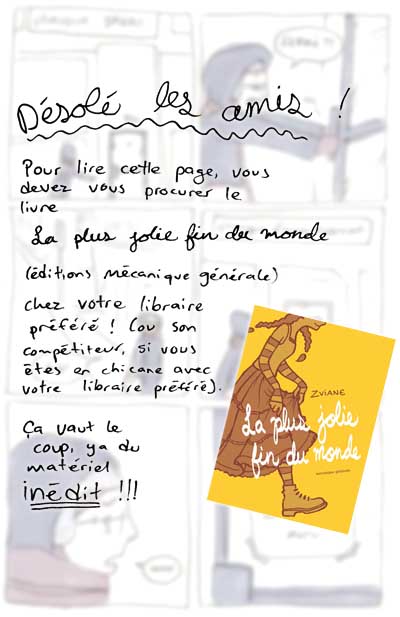 Désolé les amis !
Pour lire cette page, vous
devez vous procurer le
livre
La plus jolie fin du monde
(éditions mécanique générale)
chez votre libraire
préféré ! (ou son
compétiteur, si vous
êtes en chicane avec
votre libraire préféré).
Ça vaut le
coup, ya du
matériel
inédit !!!
ZVIANE
La plus jolie
fin du monde
mécanique générale